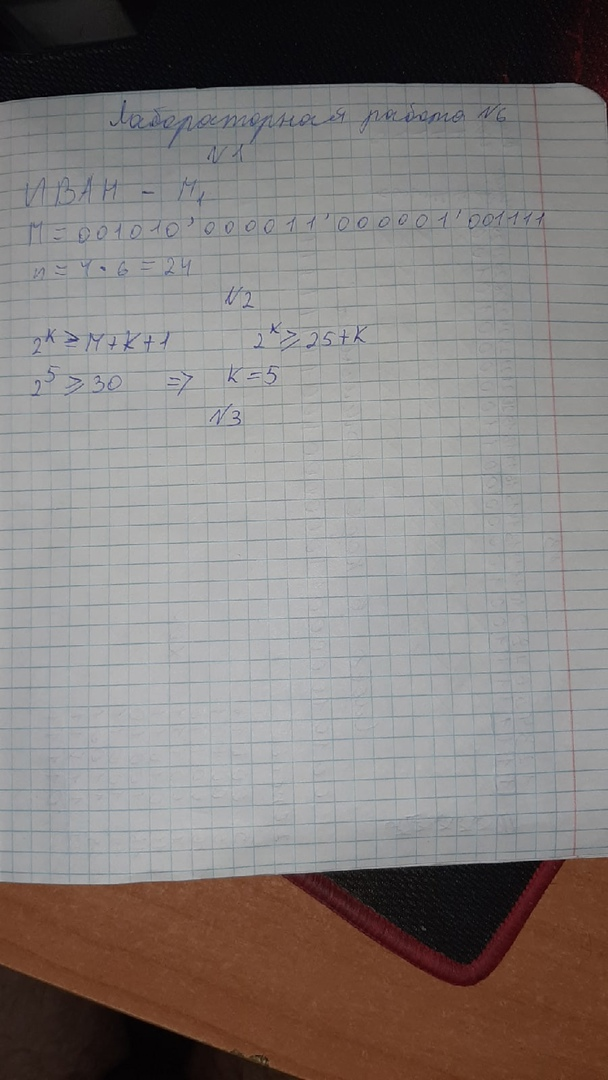 Лабораторная работа №6
№1
ИВАН - M₁
M = 001010'000011'000001'001111
n = 4 · 6 = 24
№2
2ᴷ ≥ M + K + 1 2ᴷ ≥ 25 + K
2⁵ ≥ 30 ⇒ K = 5
№3